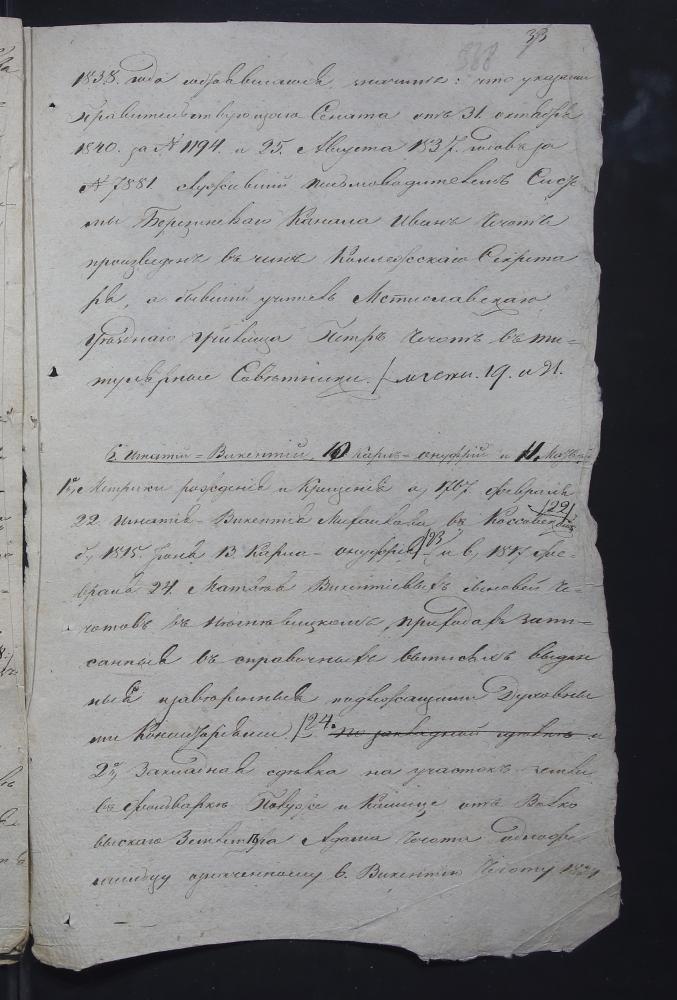 33
1838. года состоявшагося, значитъ: что указами
Правительствующаго Сената отъ 31. октября
1840. за N 1194. и 25. Августа 1837. годовъ за
N 7881 служившій письмоводителемъ Систе
мы Березинскаго Канала Иванъ Чечотъ
произведенъ въ чинъ Коллежскаго Секрета
ря, а бывшій учитель Мстиславскаго
уѣзднаго училища Петръ Чечотъ въ ти-
тулярные Совѣтники. / 19. и 21.
6. Игнатій-Викентій, 10 Карлъ-Онуфрій и 11. Матвѣй
1е, Метрики рожденія и Крещенія а, 1767 февраля
22 Игнатія-Викентія Михайлова, въ /22/
б, 1815. Іюня 13 Карла-Онуфрія /23 и в, 1817. фе-
враля 24. Матвѣя Викентіевыхъ сыновей Че-
чотовъ въ приходахъ запи-
санныя въ справочныхъ выписяхъ выдан
ныя и завѣренныя подлежащими Духовны
ми Консисторіями /24.
2я, Закладная сдѣлка на участокъ земли
въ фольваркѣ и отъ Волко
выскаго Адама Чечота
означенному в. Викентію Чечоту 1821